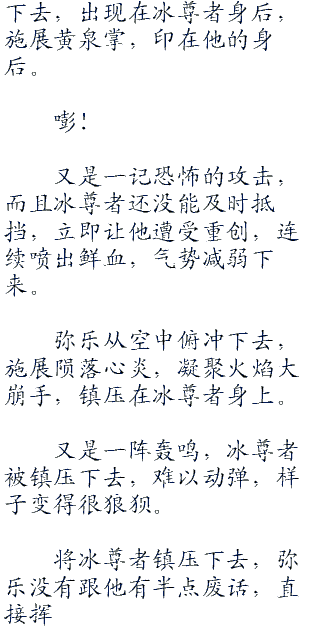 下去，出现在冰尊者身后，
施展黄泉掌，印在他的身
后。
嘭！
又是一记恐怖的攻击，
而且冰尊者还没能及时抵
挡，立即让他遭受重创，连
续喷出鲜血，气势减弱下
来。
弥乐从空中俯冲下去，
施展陨落心炎，凝聚火焰大
崩手，镇压在冰尊者身上。
又是一阵轰鸣，冰尊者
被镇压下去，难以动弹，样
子变得很狼狈。
将冰尊者镇压下去，弥
乐没有跟他有半点废话，直
接挥